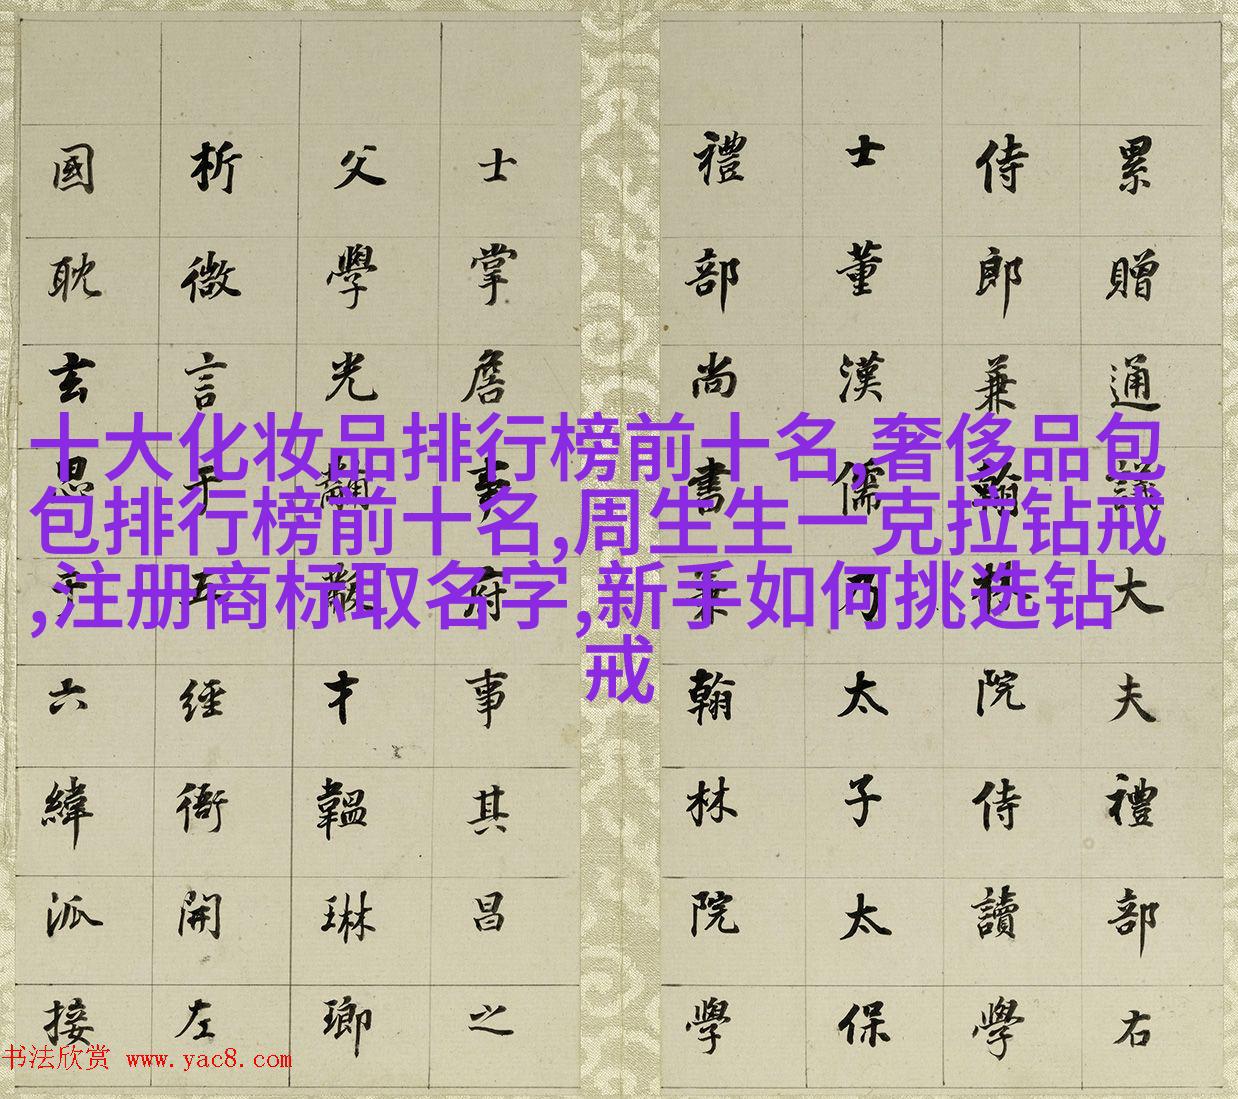 十大化妆品排行榜前十名,奢侈品包
包排行榜前十名,周生生一克拉钻戒
,注册商标取名字,新手如何挑选钻
戒
累贈通議大夫禮部右
侍郎兼翰林院侍讀學
士董漢儒乃太子太保
禮部尚書兼翰林院學
士掌詹事府事其昌之
父學光黼黻才韞琳瑯
析微言于五經衙開左
國耽玄思于六緯派接
书法欣赏 www.yac8.com